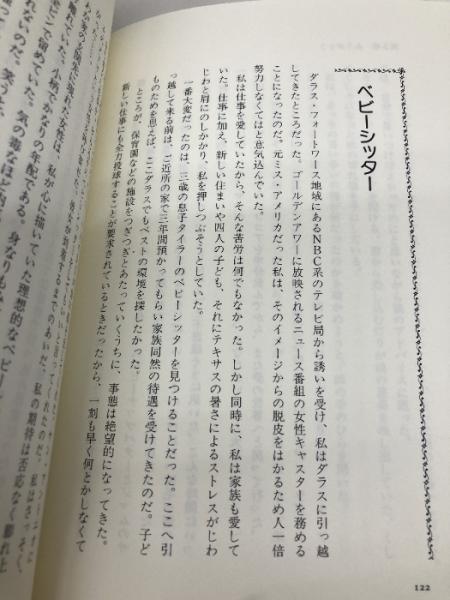 ベビーシッター
ダラス・フォートワース地域にあるNBC系のテレビ局から誘いを受け、私はダラスに引っ越
してきたところだった。ゴールデンアワーに放映されるニュース番組の女性キャスターを務める
ことになったのだ。元ミス・アメリカだった私は、そのイメージからの脱皮をはかるため人一倍
努力しなくてはと意気込んでいた。
私は仕事を愛していたから、そんな苦労は何でもなかった。しかし同時に、私は家族も愛して
いた。仕事に加え、新しい住まいや四人の子ども、それにテキサスの暑さによるストレスがじわ
じわと肩にのしかかり、私を押しつぶそうとしていた。
一番大変だったのは、三歳の息子タイラーのベビーシッターを見つけることだった。ここへ引
っ越して来る前は、ご近所の家で三年間預かってもらい家族同然の待遇を受けてきたのだ。子ど
ものためを思えば、ここダラスでもベストの環境を探したかった。
ところが、保育園などの施設をつぎつぎとあたっていくうちに、事態は絶望的になってきた。
新しい仕事にも全力投球することが要求されているときだったから、一刻も早く何とかしなくて
122
私の期待は否応なく膨れ上
現れた女性は、私が心に描いていた理想的なベビー
の年配である。身なりも
で留めていた。気の毒なほど
れないのだ。笑うと